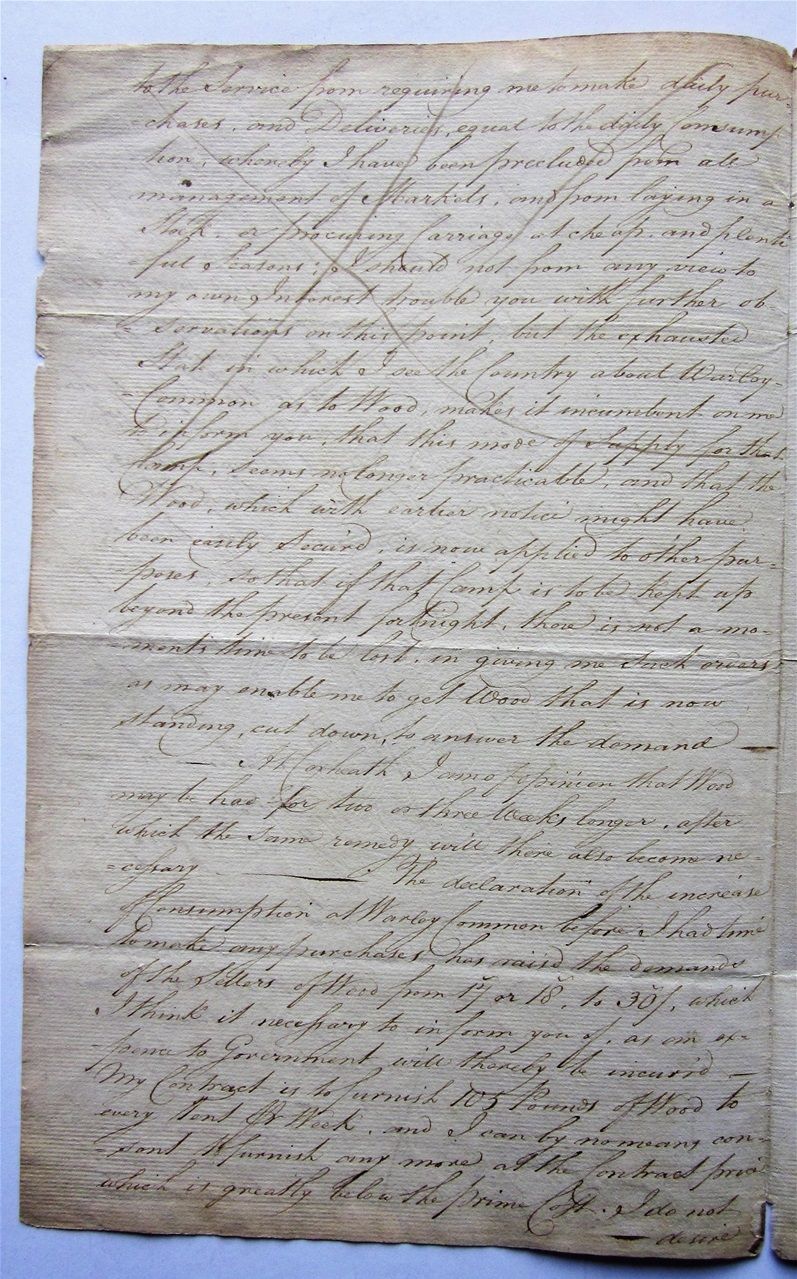 to the Service from requiring me to make daily pur=
=chases, and Deliveries, equal to the daily Consump
tion, whereby I have been precluded from all
management of Markets, and from laying in a
Stock, or procuring Carriage at cheap, and plenti
=ful Seasons; I should not from any view to
my own Interest trouble you with further ob
=servations on this point, but the exhausted
State in which I see the Country about Warley=
=Common as to Wood, makes it incumbent on me
to inform you, that this mode of Supply for that
Camp, seems no longer practicable, and that the
Wood, which with earlier notice might have
been easily Secur'd, is now applied to other pur=
=poses, so that if that Camp is to be kept up
beyond the present fortnight, there is not a mo=
=ments time to be lost, in giving me such orders
as may enable me to get Wood that is now
standing, cut down, to answer the demand —
— At Coxheath I am of opinion that Wood
may be had for two or three Weeks longer, after
which the same remedy will there also become ne=
=cessary — The declaration of the increase
of Consumption at Warley Common before I had time
to make any purchases has raised the demands
of the Sellers of Wood from 17 or 18, to 30/, which
I think it necessary to inform you of, as an ex=
=pence to Government will thereby be incur'd —
My Contract is to furnish 105 Pounds of Wood to
every Tent Pr Week, and I can by no means con=
=sent to furnish any more at the Contract price
which is greatly below the prime Cost. I do not
— desire